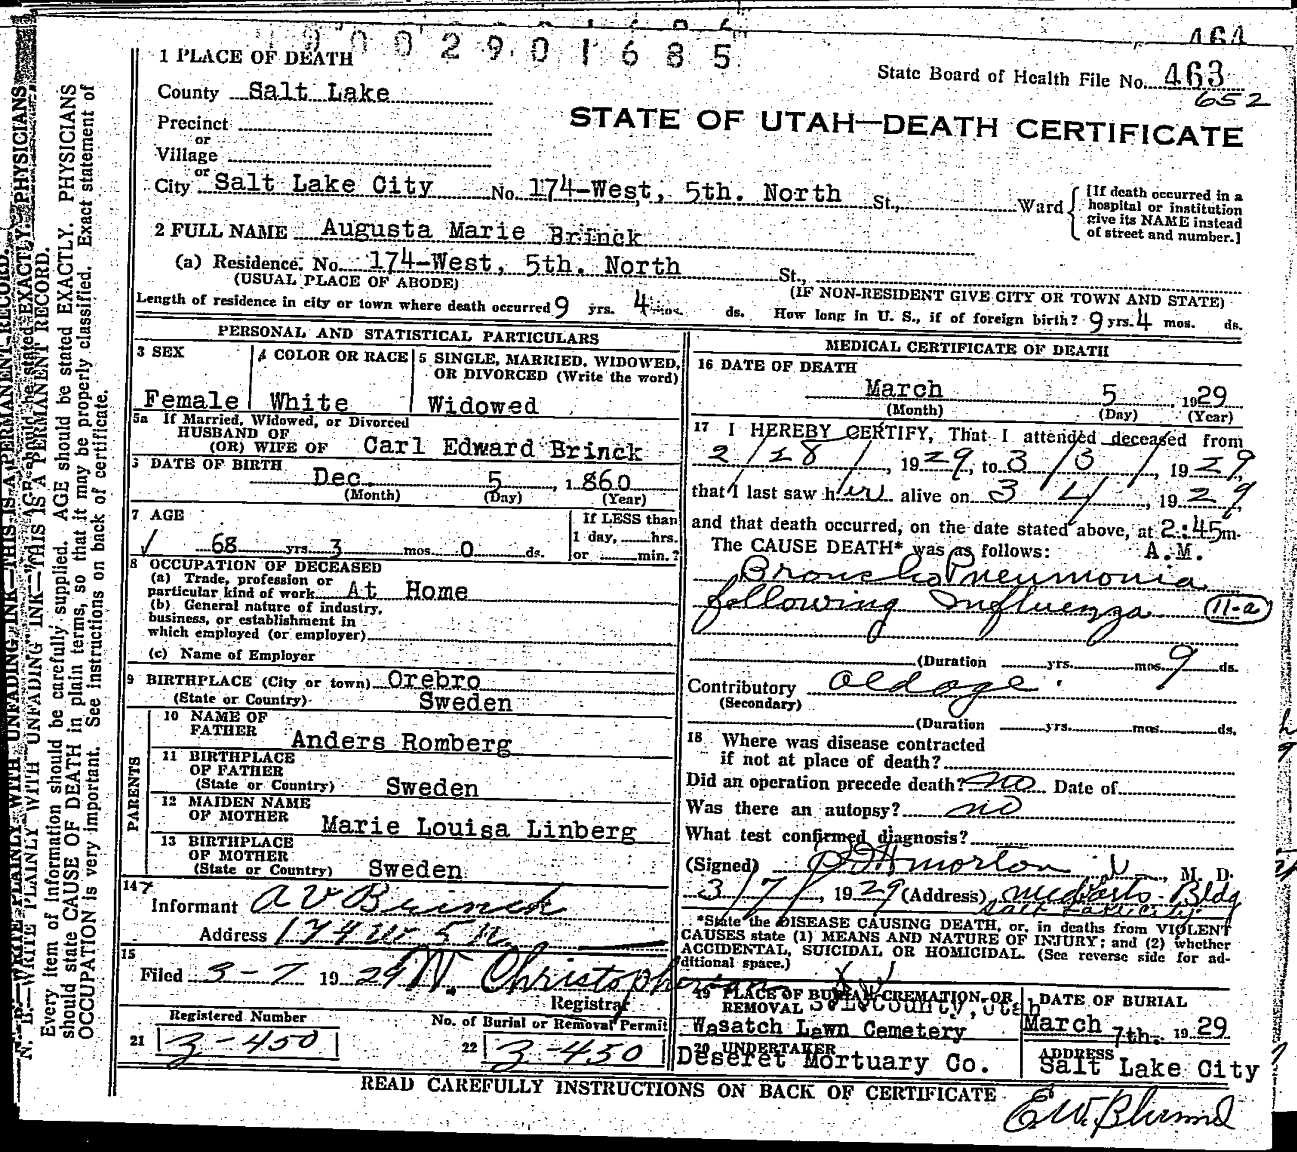 19002901685
464
1 PLACE OF DEATH
State Board of Health File No. 463
652
County Salt Lake
STATE OF UTAH—DEATH CERTIFICATE
Precinct
or
Village
or
City Salt Lake City No. 174-West, 5th. North St., Ward
[If death occurred in a hospital or institution give its NAME instead of street and number.]
2 FULL NAME Augusta Marie Brinck
(a) Residence. No. 174-West, 5th. North St.,
(USUAL PLACE OF ABODE) (IF NON-RESIDENT GIVE CITY OR TOWN AND STATE)
Length of residence in city or town where death occurred 9 yrs. 4 mos. ds. How long in U. S., if of foreign birth? 9 yrs. 4 mos. ds.
PERSONAL AND STATISTICAL PARTICULARS
3 SEX
Female
4 COLOR OR RACE
White
5 SINGLE, MARRIED, WIDOWED, OR DIVORCED (Write the word)
Widowed
5a If Married, Widowed, or Divorced
HUSBAND OF
(OR) WIFE OF Carl Edward Brinck
DATE OF BIRTH
Dec. 5, 1860
(Month) (Day) (Year)
7 AGE
68 yrs. 3 mos. 0 ds.
If LESS than
1 day, hrs.
or min.?
8 OCCUPATION OF DECEASED
(a) Trade, profession or
particular kind of work At Home
(b) General nature of industry,
business, or establishment in
which employed (or employer)
(c) Name of Employer
9 BIRTHPLACE (City or town) Orebro
(State or Country) Sweden
PARENTS
10 NAME OF
FATHER Anders Romberg
11 BIRTHPLACE
OF FATHER
(State or Country) Sweden
12 MAIDEN NAME
OF MOTHER Marie Louisa Linberg
13 BIRTHPLACE
OF MOTHER
(State or Country) Sweden
14
Informant A V Brinck
Address 174 W 5 N
15
Filed 3-7 1929 W. Christopherson
Registrar
Registered Number
21 3-450
No. of Burial or Removal Permit
22 3-450
MEDICAL CERTIFICATE OF DEATH
16 DATE OF DEATH
March 5, 1929
(Month) (Day) (Year)
17 I HEREBY CERTIFY, That I attended deceased from
2/28/, 1929, to 3/5/, 1929,
that I last saw her alive on 3/4/, 1929,
and that death occurred, on the date stated above, at 2:45 m.
The CAUSE DEATH* was as follows: A.M.
Broncho Pneumonia
following Influenza 11-a
(Duration yrs. mos. 9 ds.
Contributory old age
(Secondary)
(Duration yrs. mos. ds.
18 Where was disease contracted
if not at place of death?
Did an operation precede death? no Date of
Was there an autopsy? no
What test confirmed diagnosis?
(Signed) Morton, M. D.
3/7/, 1929 (Address) Bldg
Salt Lake City
*State the DISEASE CAUSING DEATH, or, in deaths from VIOLENT
CAUSES state (1) MEANS AND NATURE OF INJURY; and (2) whether
ACCIDENTAL, SUICIDAL OR HOMICIDAL. (See reverse side for ad-
ditional space.)
19 PLACE OF BURIAL CREMATION OR
REMOVAL County, Utah
Wasatch Lawn Cemetery
DATE OF BURIAL
March 7th. 1929
20 UNDERTAKER
Deseret Mortuary Co.
ADDRESS
Salt Lake City
READ CAREFULLY INSTRUCTIONS ON BACK OF CERTIFICATE
N. B.—WRITE PLAINLY WITH UNFADING INK—THIS IS A PERMANENT RECORD.
Every item of information should be carefully supplied. AGE should be stated EXACTLY. PHYSICIANS
should state CAUSE OF DEATH in plain terms, so that it may be properly classified. Exact statement of
OCCUPATION is very important. See instructions on back of certificate.